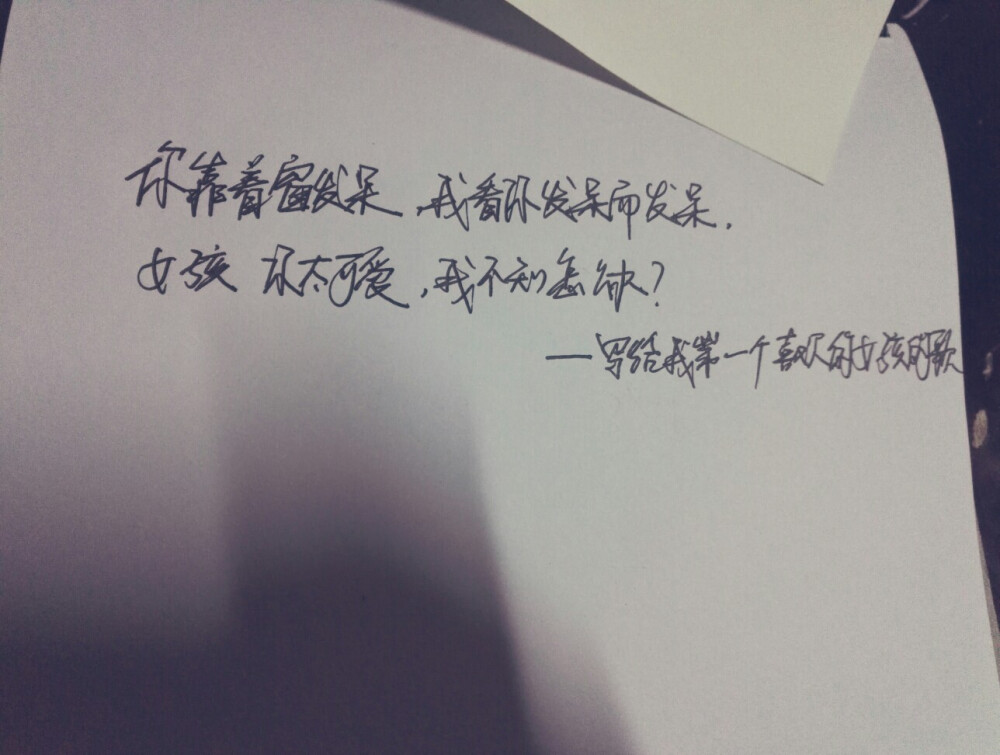 你靠着窗发呆,我看你发呆而发呆.
女孩 你太可爱,我不知怎么办?
——写给我第一个喜欢的女孩的歌